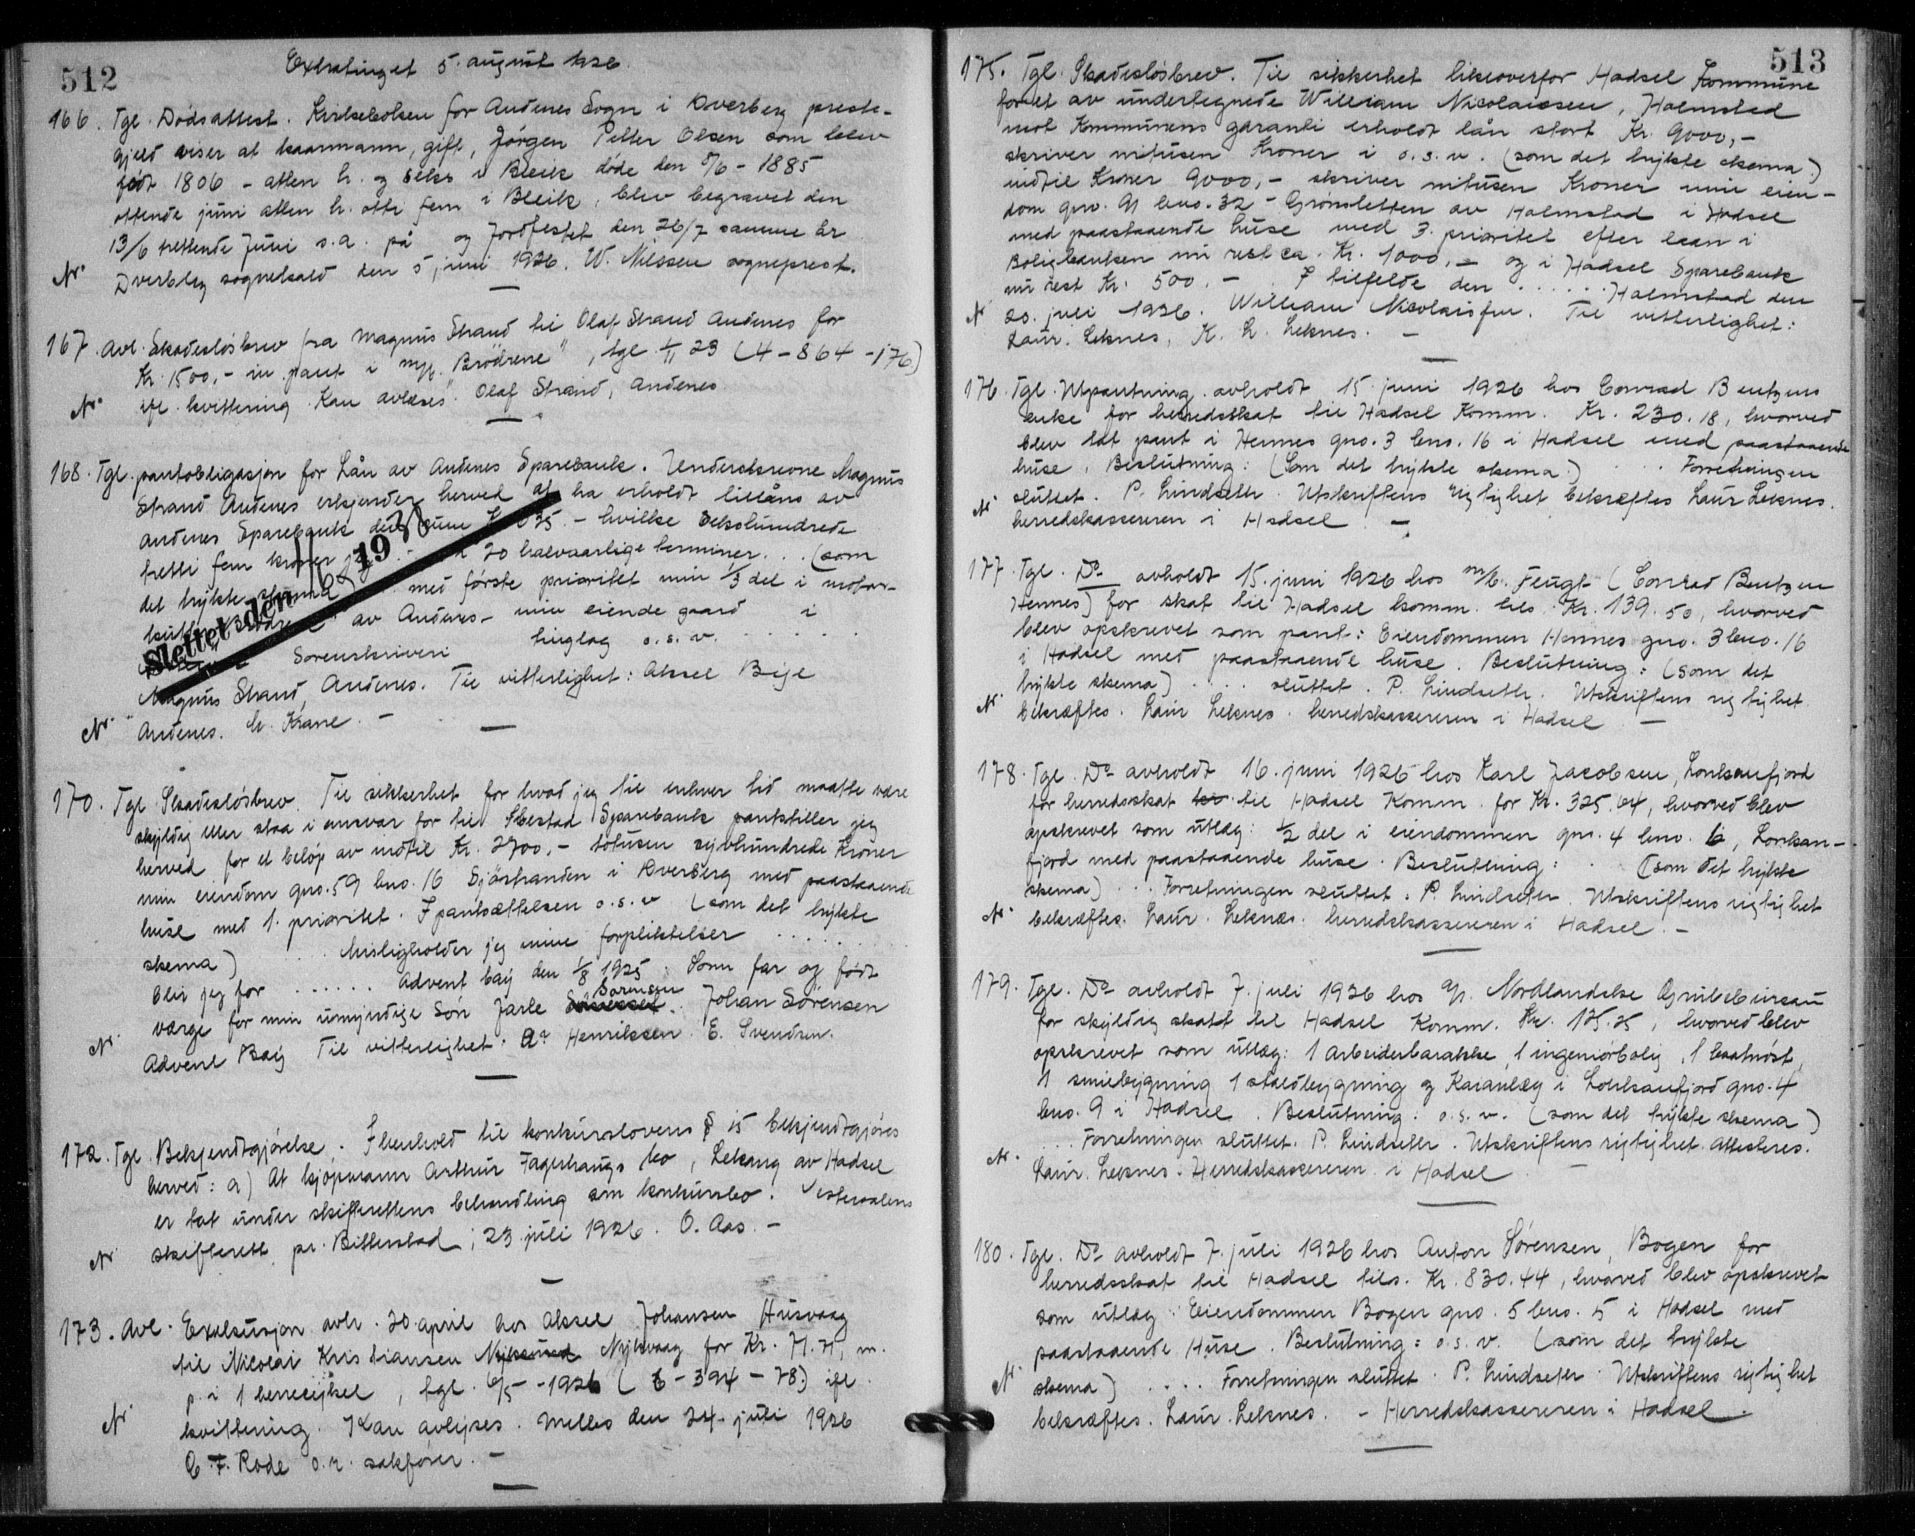 512
Extratinget 5. august 1926
166. Tgl. Dødsattest. Kirkeboken for Andenes Sogn i Dverberg preste-
gjeld viser at kaarmann, gift, Jørgen Petter Olsen som blev
født 1806 - atten h. og seks i Bleik døde den 8/6 - 1885
ottende juni atten h. otti fem i Bleik, blev begravet den
13/6 trettende Juni s.a. på og Jordfestet den 26/7 samme år
Dverberg sognekald den 5 juni 1926. W. Nilssen sogneprest.
N.
167. Avl. Skadesløsbrev fra Magnus Strand til Olaf Strand Andenes for
Kr. 1500,- m. pant i m/k. "Brødrene", tgl. 1/11 23 (4-864-176)
ifl. kvittering "Kan avlæses". Olaf Strand, Andenes
N.
168. Tgl. pantobligasjon for Lån av Andenes Sparebank. Underskrevne Magnus
Strand Andenes erkjender herved at ha erholdt tillåns av
Andenes Sparebank den sum 635.- hvilke sekshundrede
tretti fem kroner jeg 20 halvaarlige terminer... (som
det trykte skema) med første prioritet min 1/3 del i motor-
kutter av Andenes - min eiende gaard i
Sorenskriveri tinglag o.s.v. . . . . .
Slettet den 19
Magnus Strand, Andenes. Til vitterlighet: Aksel Beje
N. Andenes. H. Krane. -
170. Tgl. Skadesløsbrev. Til sikkerhet for hvad jeg til enhver tid maatte være
skyldig eller staa i ansvar for til Ibestad Sparebank pantstiller jeg
herved for et beløp av indtil Kr. 2700,- totusen syvhundrede Kroner
min eiendom gno. 59 bno. 16 Sjøstranden i Dverberg med paastaaende
huse med 1. prioritet. I pantsættelsen o.s.v (som det trykte
skema) . . Misligholder jeg mine forpliktelser . . . . . .
blir jeg for . . . . . . Advent baij den 1/8 1925: Som far og født
værge for min umyndige Søn Jarle Sørensen. Johan Sørensen
N. Advent Baij Til vitterlighet: Henriksen. E. Svendsen.
172. Tgl. Bekjendtgjørelse. I henhold til konkurslovens § 15 bekjendtgjøres
herved: a) At kjøpmann Arthur Fagerhaugs bo, Lekang av Hadsel
er tat under skifterettens behandling som konkursbo. Vesteraalens
N. skifterett pr. Bitterstad; 23 juli 1926. O. Aas. -
173. Avl. Exekusjon avh. 20 april hos Aksel Johansen Husvaag
til Nicolai Kristiansen Nyksund Nykvaag for Kr. 71.71, m.
p. i 1 herrecykel, tgl. 6/5 - 1926 (6-394-78.) ifl.
kvittering. "Kan avlyses. Melbo den 24. juli 1926
N. C. F. Rode o.r. sakfører. -
513
175. Tgl. Skadesløsbrev. Til sikkerhet likeoverfor Hadsel Kommune
for et av undertegnede William Nicolaissen, Holmstad
mot Kommunens garanti erholdt lån stort Kr. 9000,-
skriver nitusen Kroner i o.s.v. (som det trykte skema.)
indtil Kroner 9000,- skriver nitusen Kroner min eien-
dom gno. 91 bno. 32 - Grønsletten av Holmstad i Hadsel
med paastaaende huse med 3. prioritet efter laan i
Boligbanken nu rest ca. Kr. 1000,- og i Hadsel Sparebank
nu rest Kr. 500.- . I tilfelde den . . . . . Holmstad den
N. 20. juli 1926. William Nicolaissen. Til vitterlighet:
Laur. Leknes, K. L. Leknes. -
176. Tgl. Utpantning avholdt 15. juni 1926 hos Conrad Bentzens
enke for herredsskat til Hadsel Komm. Kr. 230.18, hvorved
blev tat pant i Hennes gno. 3 bno. 16 i Hadsel med paastaaende
huse. Beslutning: (Som det trykte skema.) . . . Forretningen
N. sluttet. P. Lindseth. Utskriftens rigtighet bekræftes Laur Leknes.
herredskassereren i Hadsel. -
177. Tgl. Do avholdt 15. juni 1926 hos m/k. Feugt (Conrad Bentzen
Hennes) for skat til Hadsel komm. tils. Kr. 139.50, hvorved
blev opskrevet som pant: Eiendommen Hennes gno. 3 bno. 16
i Hadsel med paastaaende huse. Beslutning: (som det
trykte skema) . . . . sluttet. P. Lindseth. Utskriftens rigtighet
N. bekræftes. Laur Leknes. herredskassereren i Hadsel -
178. Tgl. Do avholdt 16. juni 1926 hos Karl Jacobsen, Lonkanfjord
for herredsskat til Hadsel Komm. for Kr. 325,64, hvorved blev
opskrevet som utlæg: 1/2 del i eiendommen gno. 4 bno. 6, Lonkan-
fjord med paastaaende huse. Beslutning: . . (som det trykte
skema) . . . Forretningen sluttet. P. Lindseth. Utskriftens rigtighet
N. bekræftes. Laur. Leknes. herredskassereren i Hadsel. -
179. Tgl. Do avholdt 7. juli 1926 hos A/S. Nordlandske Grubebureau
for skyldig skatt til Hadsel Komm. Kr. 175.25, hvorved blev
opskrevet som utlæg: 1 arbeiderbarakke, 1 ingeniørbolig, 1 baatnøst,
1 smiebygning 1 staldbygning og Kaianlæg i Lonkanfjord gno. 4
bno. 9 i Hadsel. Beslutning: o.s.v. (som det trykte skema)
. . . Forretningen sluttet. P. Lindseth. Utskriftens rigtighet attesteres.
N. Laur. Leknes. Herredskassereren i Hadsel. -
180. Tgl. Do avholdt 7. juli 1926 hos Anton Sørensen, Bogen for
herredsskat til Hadsel tils. Kr. 830.44, hvorved blev opskrevet
som utlæg: Eiendommen Bogen gno. 5 bno. 5 i Hadsel med
paastaaende Huse. Beslutning: o.s.v. (som det trykte
N. skema) . . . . Forretningen sluttet. P. Lindseth. Utskriftens rigtighet
bekræftes. Laur. Leknes. - Herredskassereren i Hadsel.